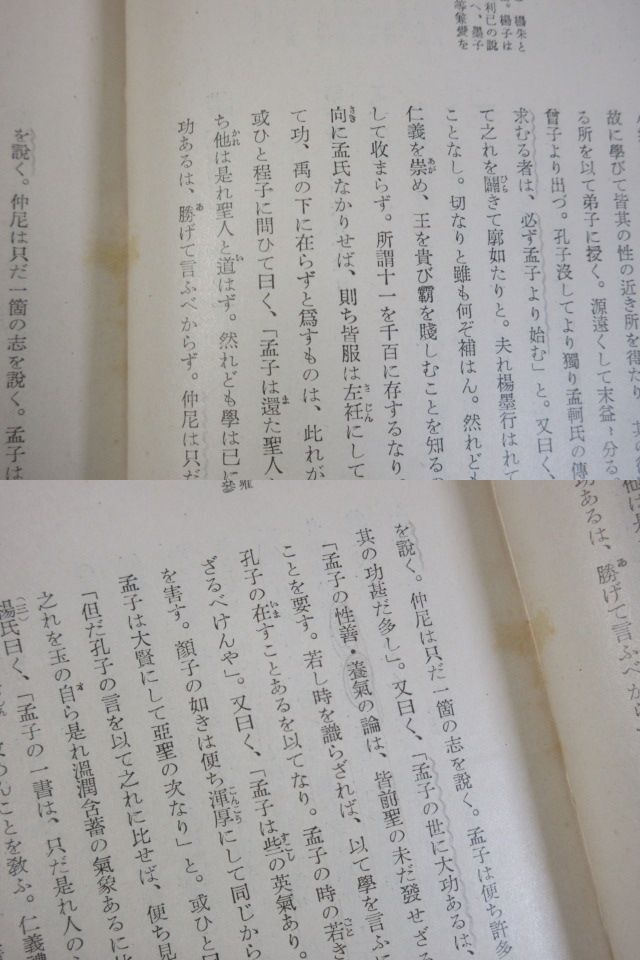 楊朱と
楊子は
利己の說
へ、墨子
等兼愛を
故に學びて皆其の性の近き所を得たり
る所を以て弟子に授く。源遠くして末益〻分る
曾子より出づ。孔子沒してより獨り孟軻氏の傳
求むる者は、必ず孟子より始む」と。又曰く、
て之れを闢きて廓如たりと。夫れ楊墨行はれて
ことなし。切なりと雖も何ぞ補はん。然れども
仁義を崇め、王を貴び霸を賤しむことを知るの
して收まらず。所謂十一を千百に存するなり。
向に孟氏なかりせば、則ち皆服は左衽にして
て功、禹の下に在らずと爲すものは、此れが
或ひと程子に問ひて曰く、「孟子は還た聖人
ち他は是れ聖人と道はず。然れども學は已に
功あるは、勝げて言ふべからず。仲尼は只だ
を說く。仲尼は只だ一箇の志を說く。孟子は
功あるは、勝げて言ふべからず
を說く。仲尼は只だ一箇の志を說く。孟子は便ち許多
其の功甚だ多し」。又曰く、「孟子の世に大功あるは、
「孟子の性善・養氣の論は、皆前聖の未だ發せざる
ことを要す。若し時を識らざれば、以て學を言ふに
孔子の在すことあるを以てなり。孟子の時の若き
ざるべけんや」。又曰く、「孟子は些の英氣あり。
を害す。顏子の如きは便ち渾厚にして同じから
孟子は大賢にして亞聖の次なり」と。或ひと曰
「但だ孔子の言を以て之れに比せば、便ち見
之れを玉の自ら是れ溫潤含蓄の氣象あるに比
楊氏曰く、「孟子の一書は、只だ是れ人の
んことを敎ふ。仁義禮